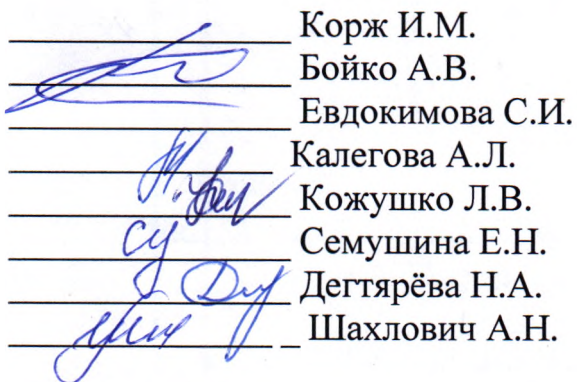 Корж И.М.
Бойко А.В.
Евдокимова С.И.
Калегова А.Л.
Кожушко Л.В.
Семушина Е.Н.
Дегтярёва Н.А.
Шахлович А.Н.